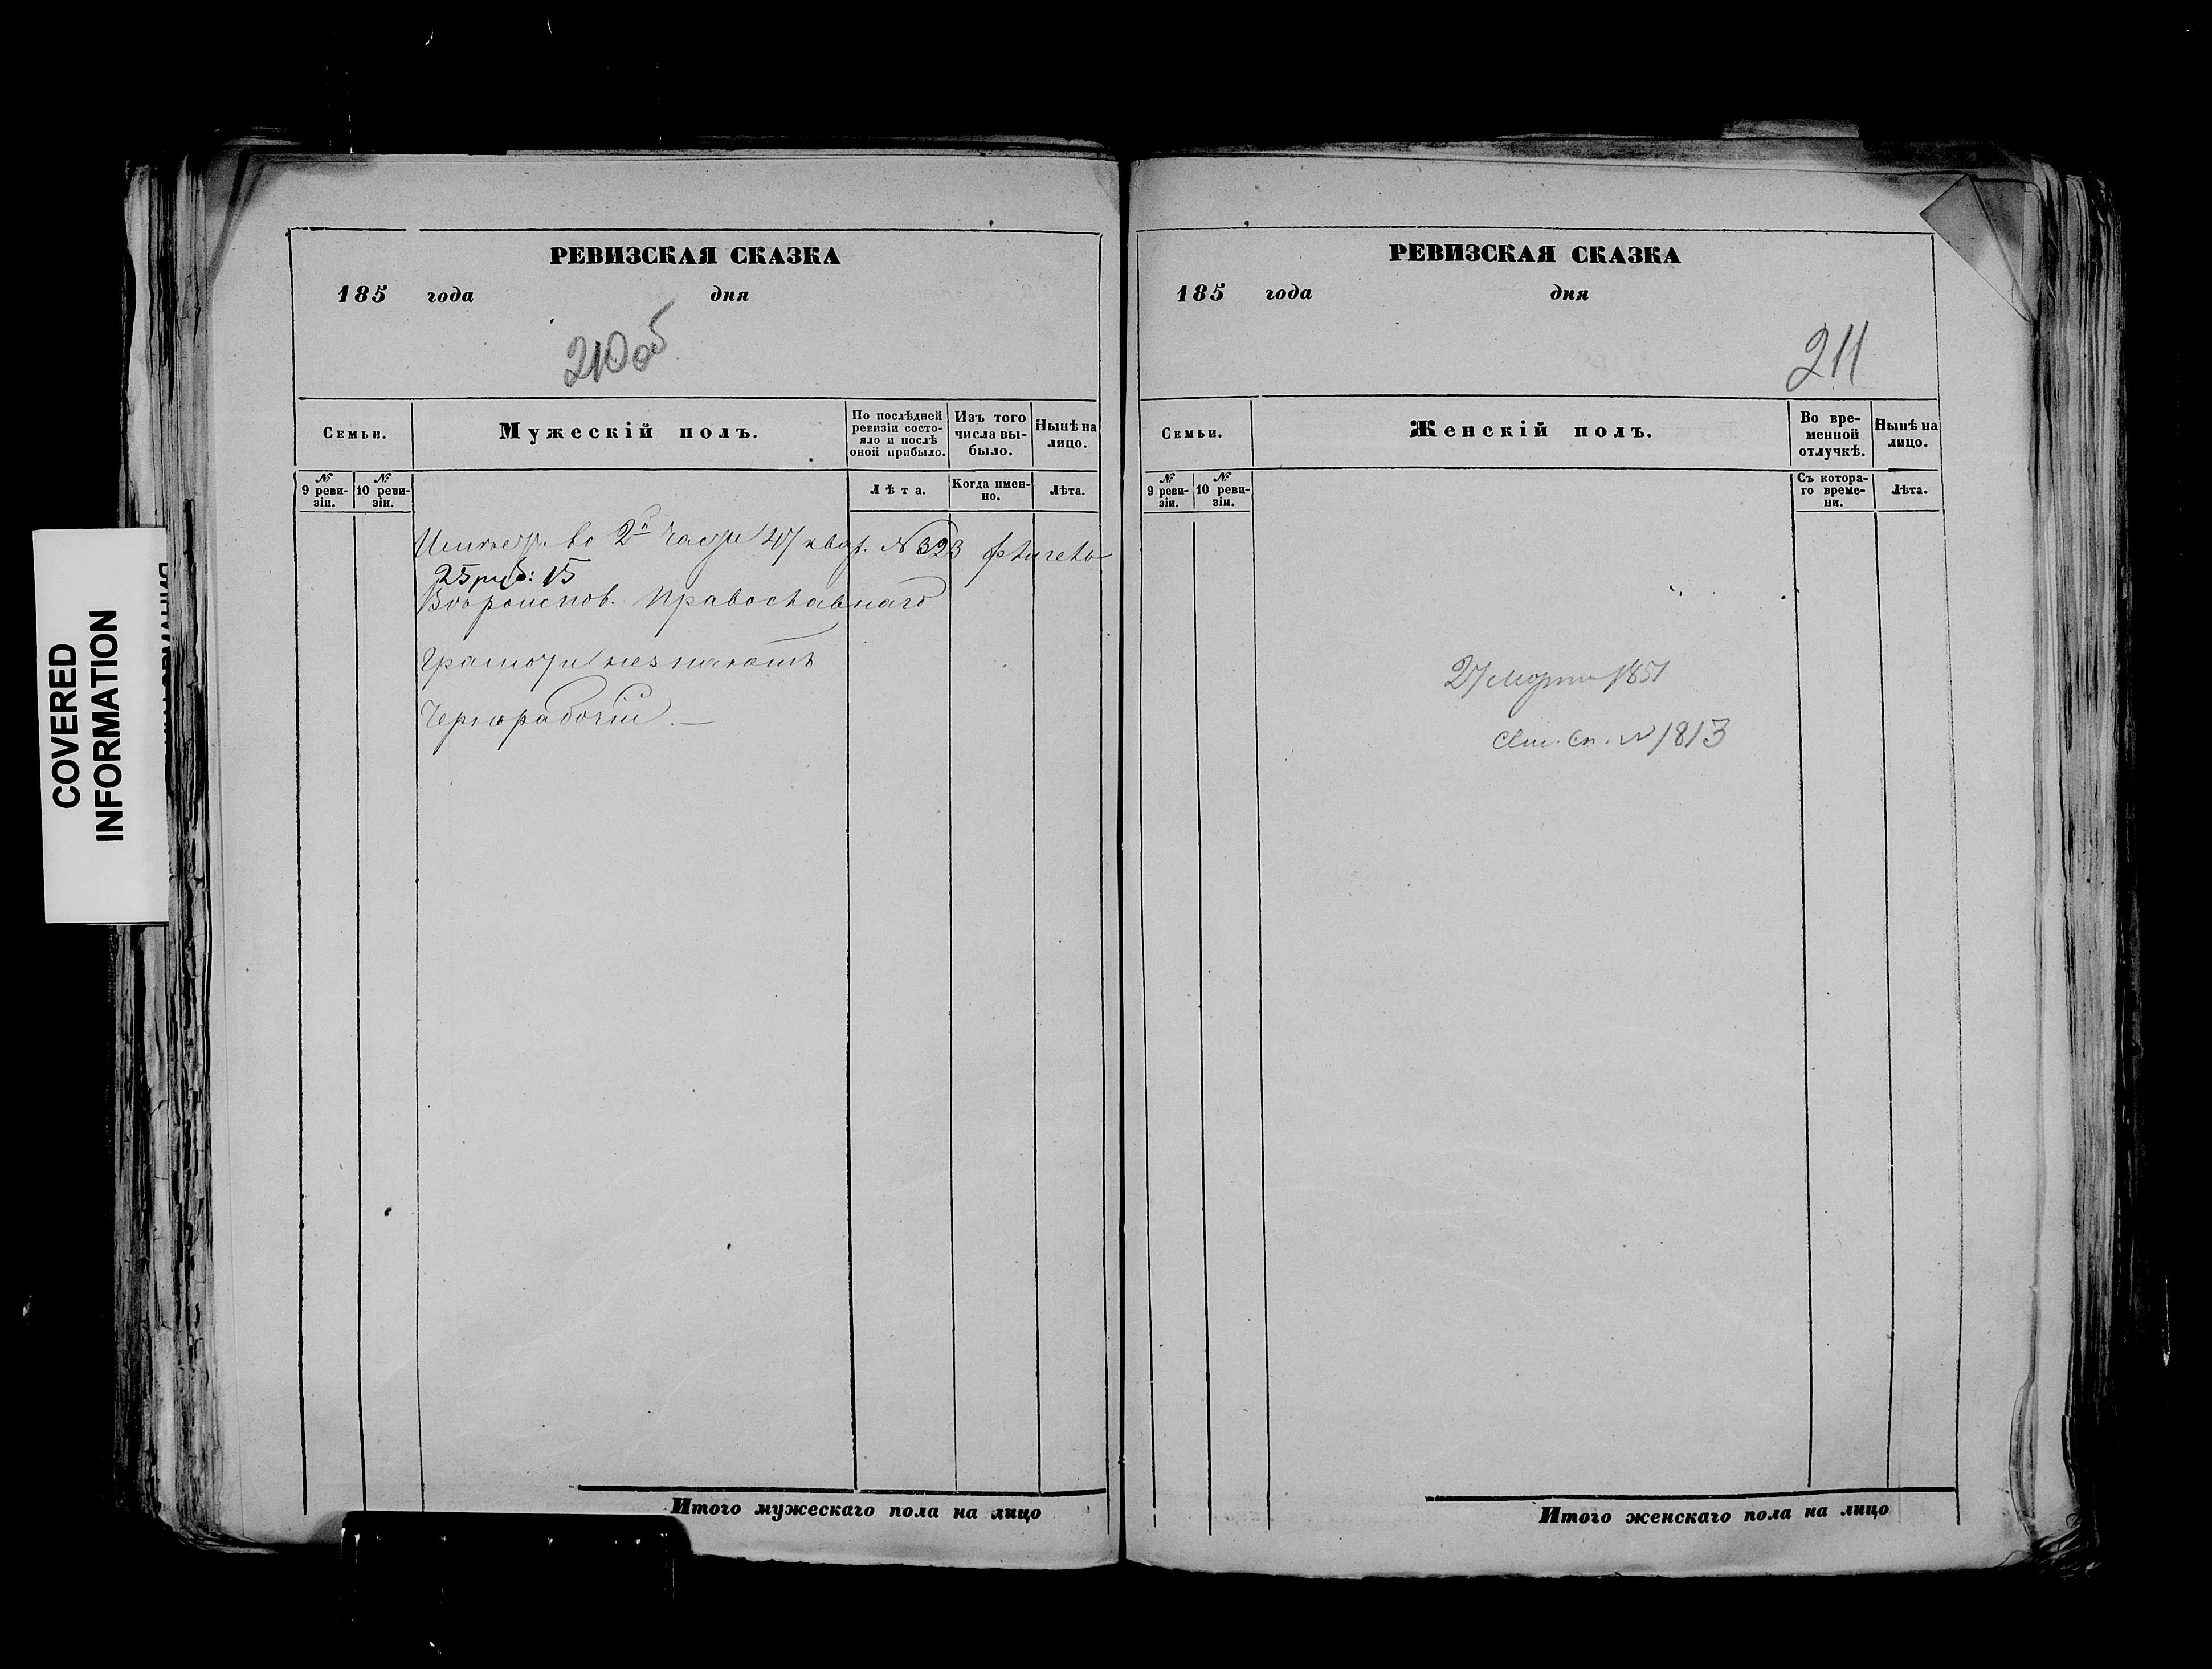 COVERED
INFORMATION
РЕВИЗСКАЯ СКАЗКА
185 года дня
210 об
Семьи.
Мужескій полъ.
По послѣдней ревизіи состояло и послѣ оной прибыло.
Изъ того числа выбыло.
Нынѣ на лицо.
№ 9 ревизіи.
№ 10 ревизіи.
Лѣта.
Когда именно.
Лѣта.
во 2й части 47 кварт. № 323
25 руб: 15
Вѣроиспов. Православнаго
Грамоты не знаютъ
Чернорабочій. —
Итого мужескаго пола на лицо
РЕВИЗСКАЯ СКАЗКА
185 года дня
211
Семьи.
Женскій полъ.
Во временной отлучкѣ.
Нынѣ на лицо.
№ 9 ревизіи.
№ 10 ревизіи.
Съ котораго времени.
Лѣта.
27 Марта 1851
Сп. № 1813
Итого женскаго пола на лицо